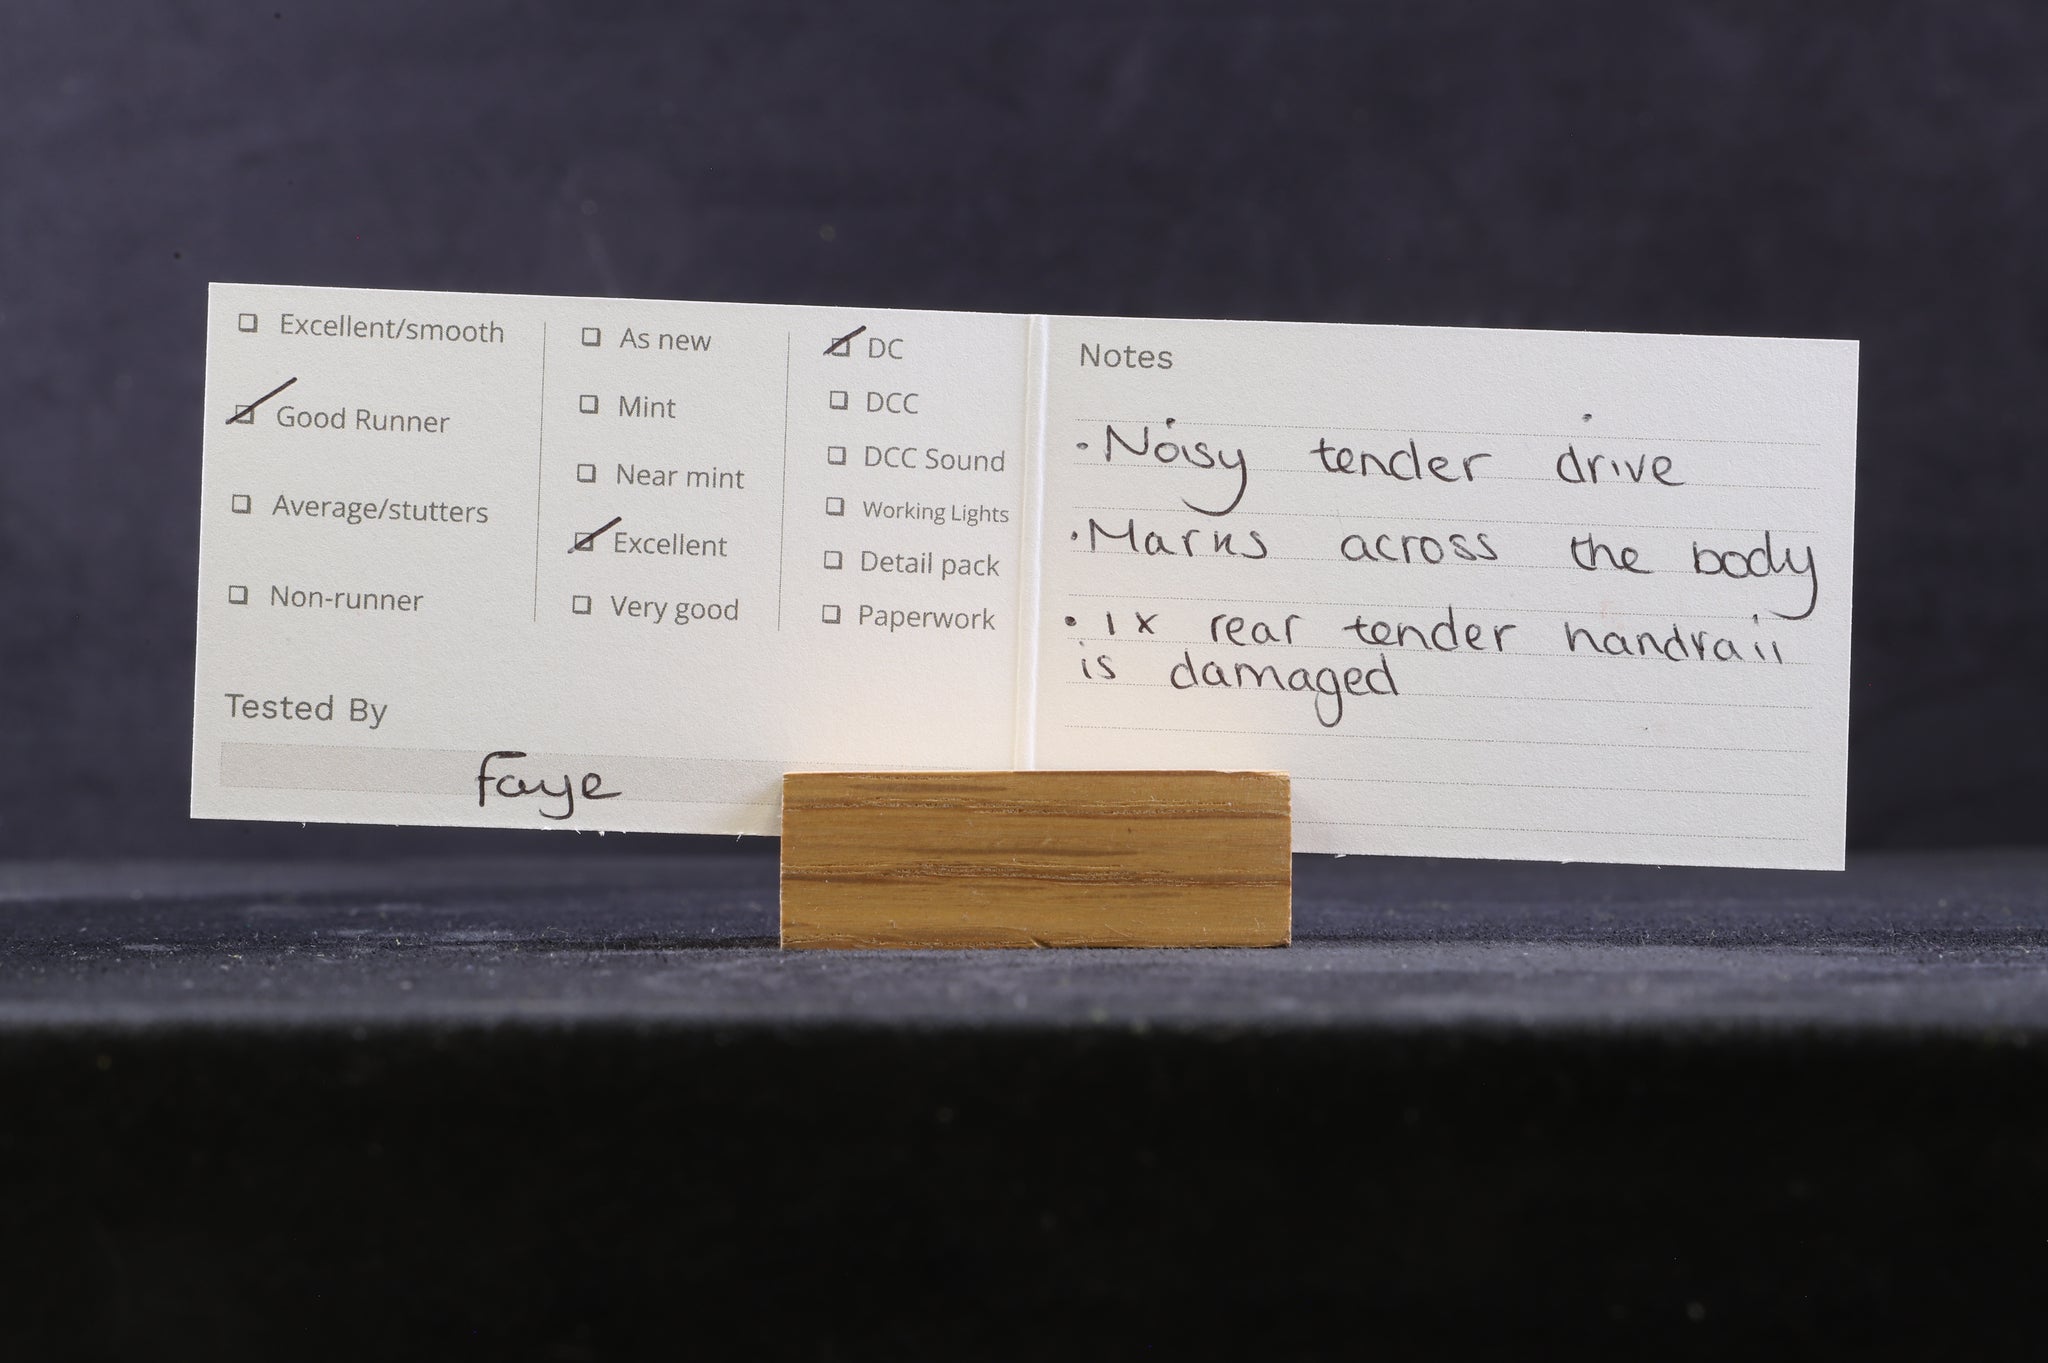 ☐ Excellent/smooth
☑ Good Runner
☐ Average/stutters
☐ Non-runner
☐ As new
☐ Mint
☐ Near mint
☑ Excellent
☐ Very good
☑ DC
☐ DCC
☐ DCC Sound
☐ Working Lights
☐ Detail pack
☐ Paperwork
Tested By
Faye
Notes
• Noisy tender drive
• Marks across the body
• 1x rear tender handrail
is damaged